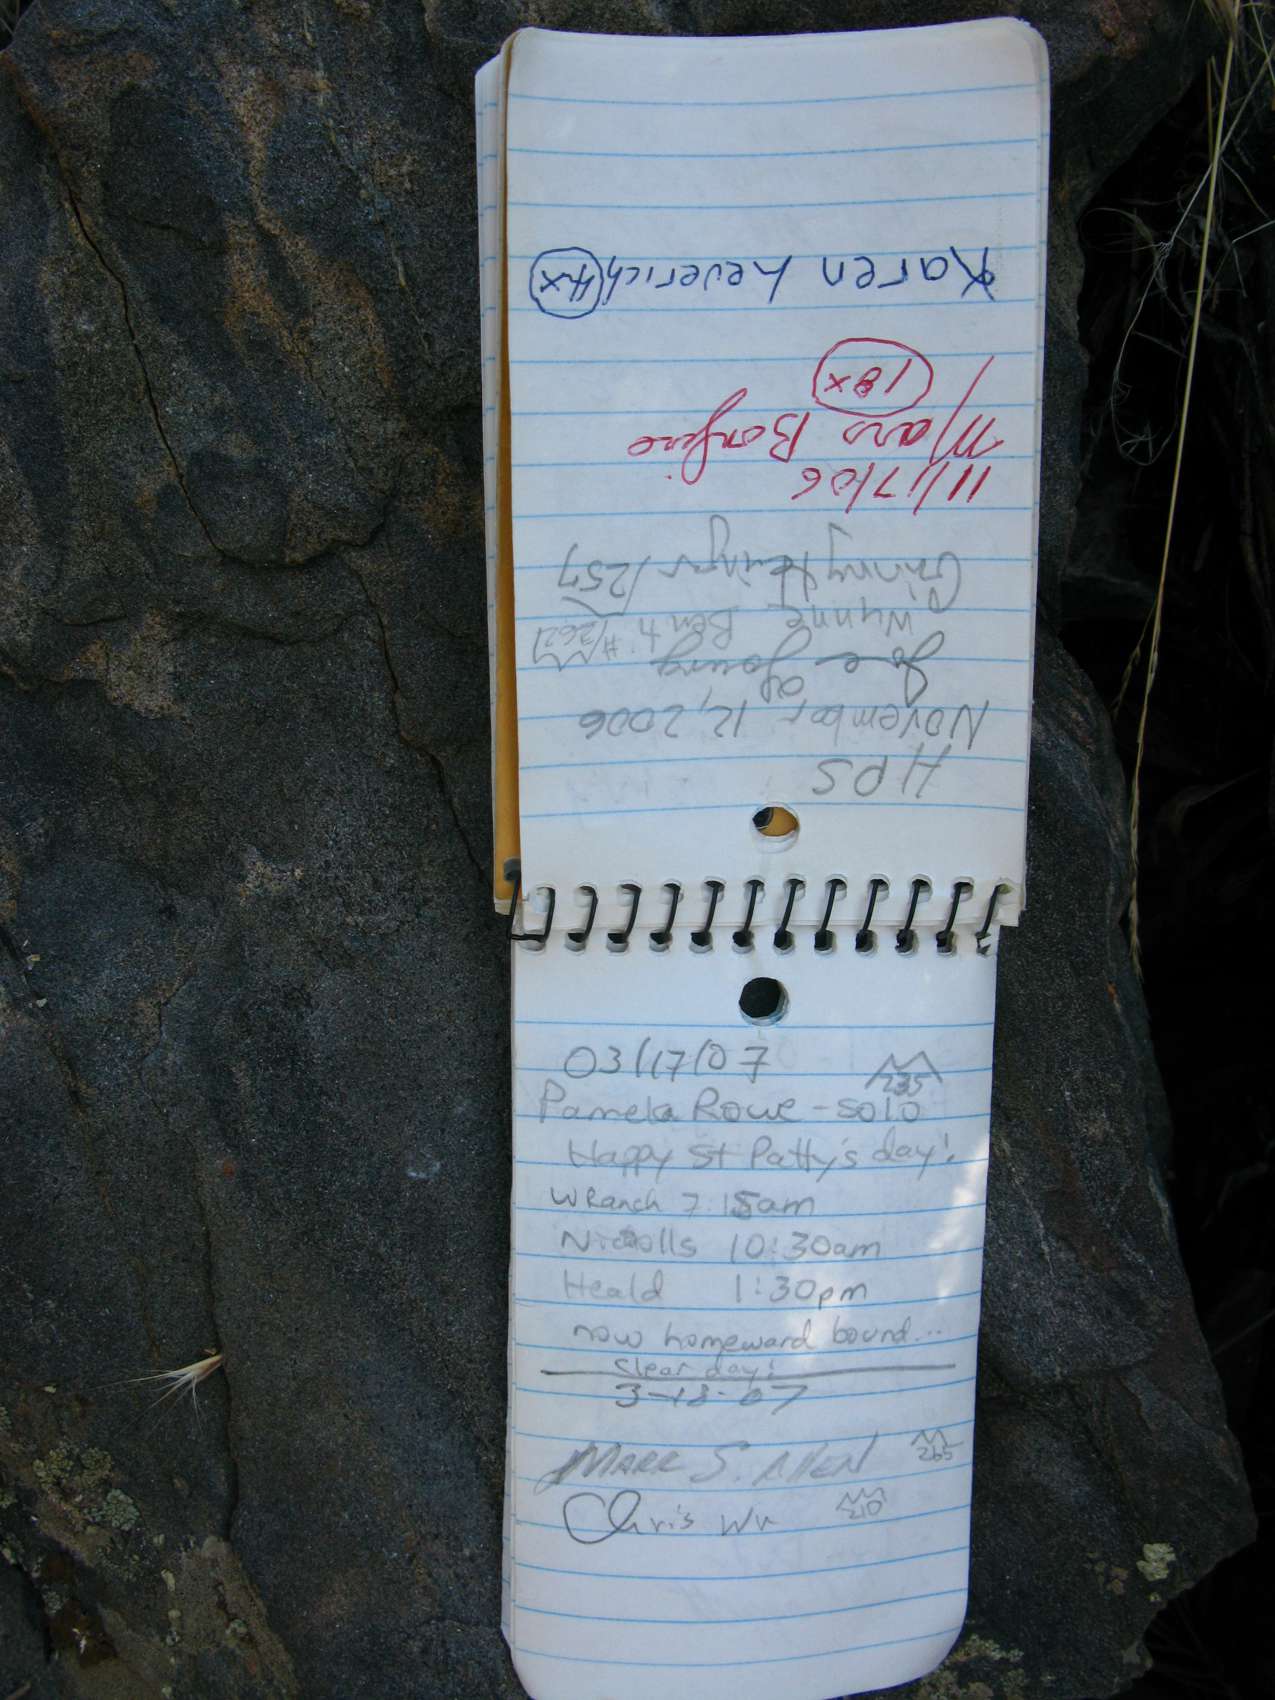 HPS
November 12, 2006
Joe Young
Wynne Benti #/262
Ginny Heringer /257
11/17/06
Mars Bonfire
18x
Karen Leverich 4x
03/17/07
235
Pamela Rowe - solo
Happy St Patty's day!
W Ranch 7:15am
Nicolls 10:30am
Heald 1:30pm
now homeward bound...
clear day!
3-18-07
Mark S. Allen 265
Chris Wu 210